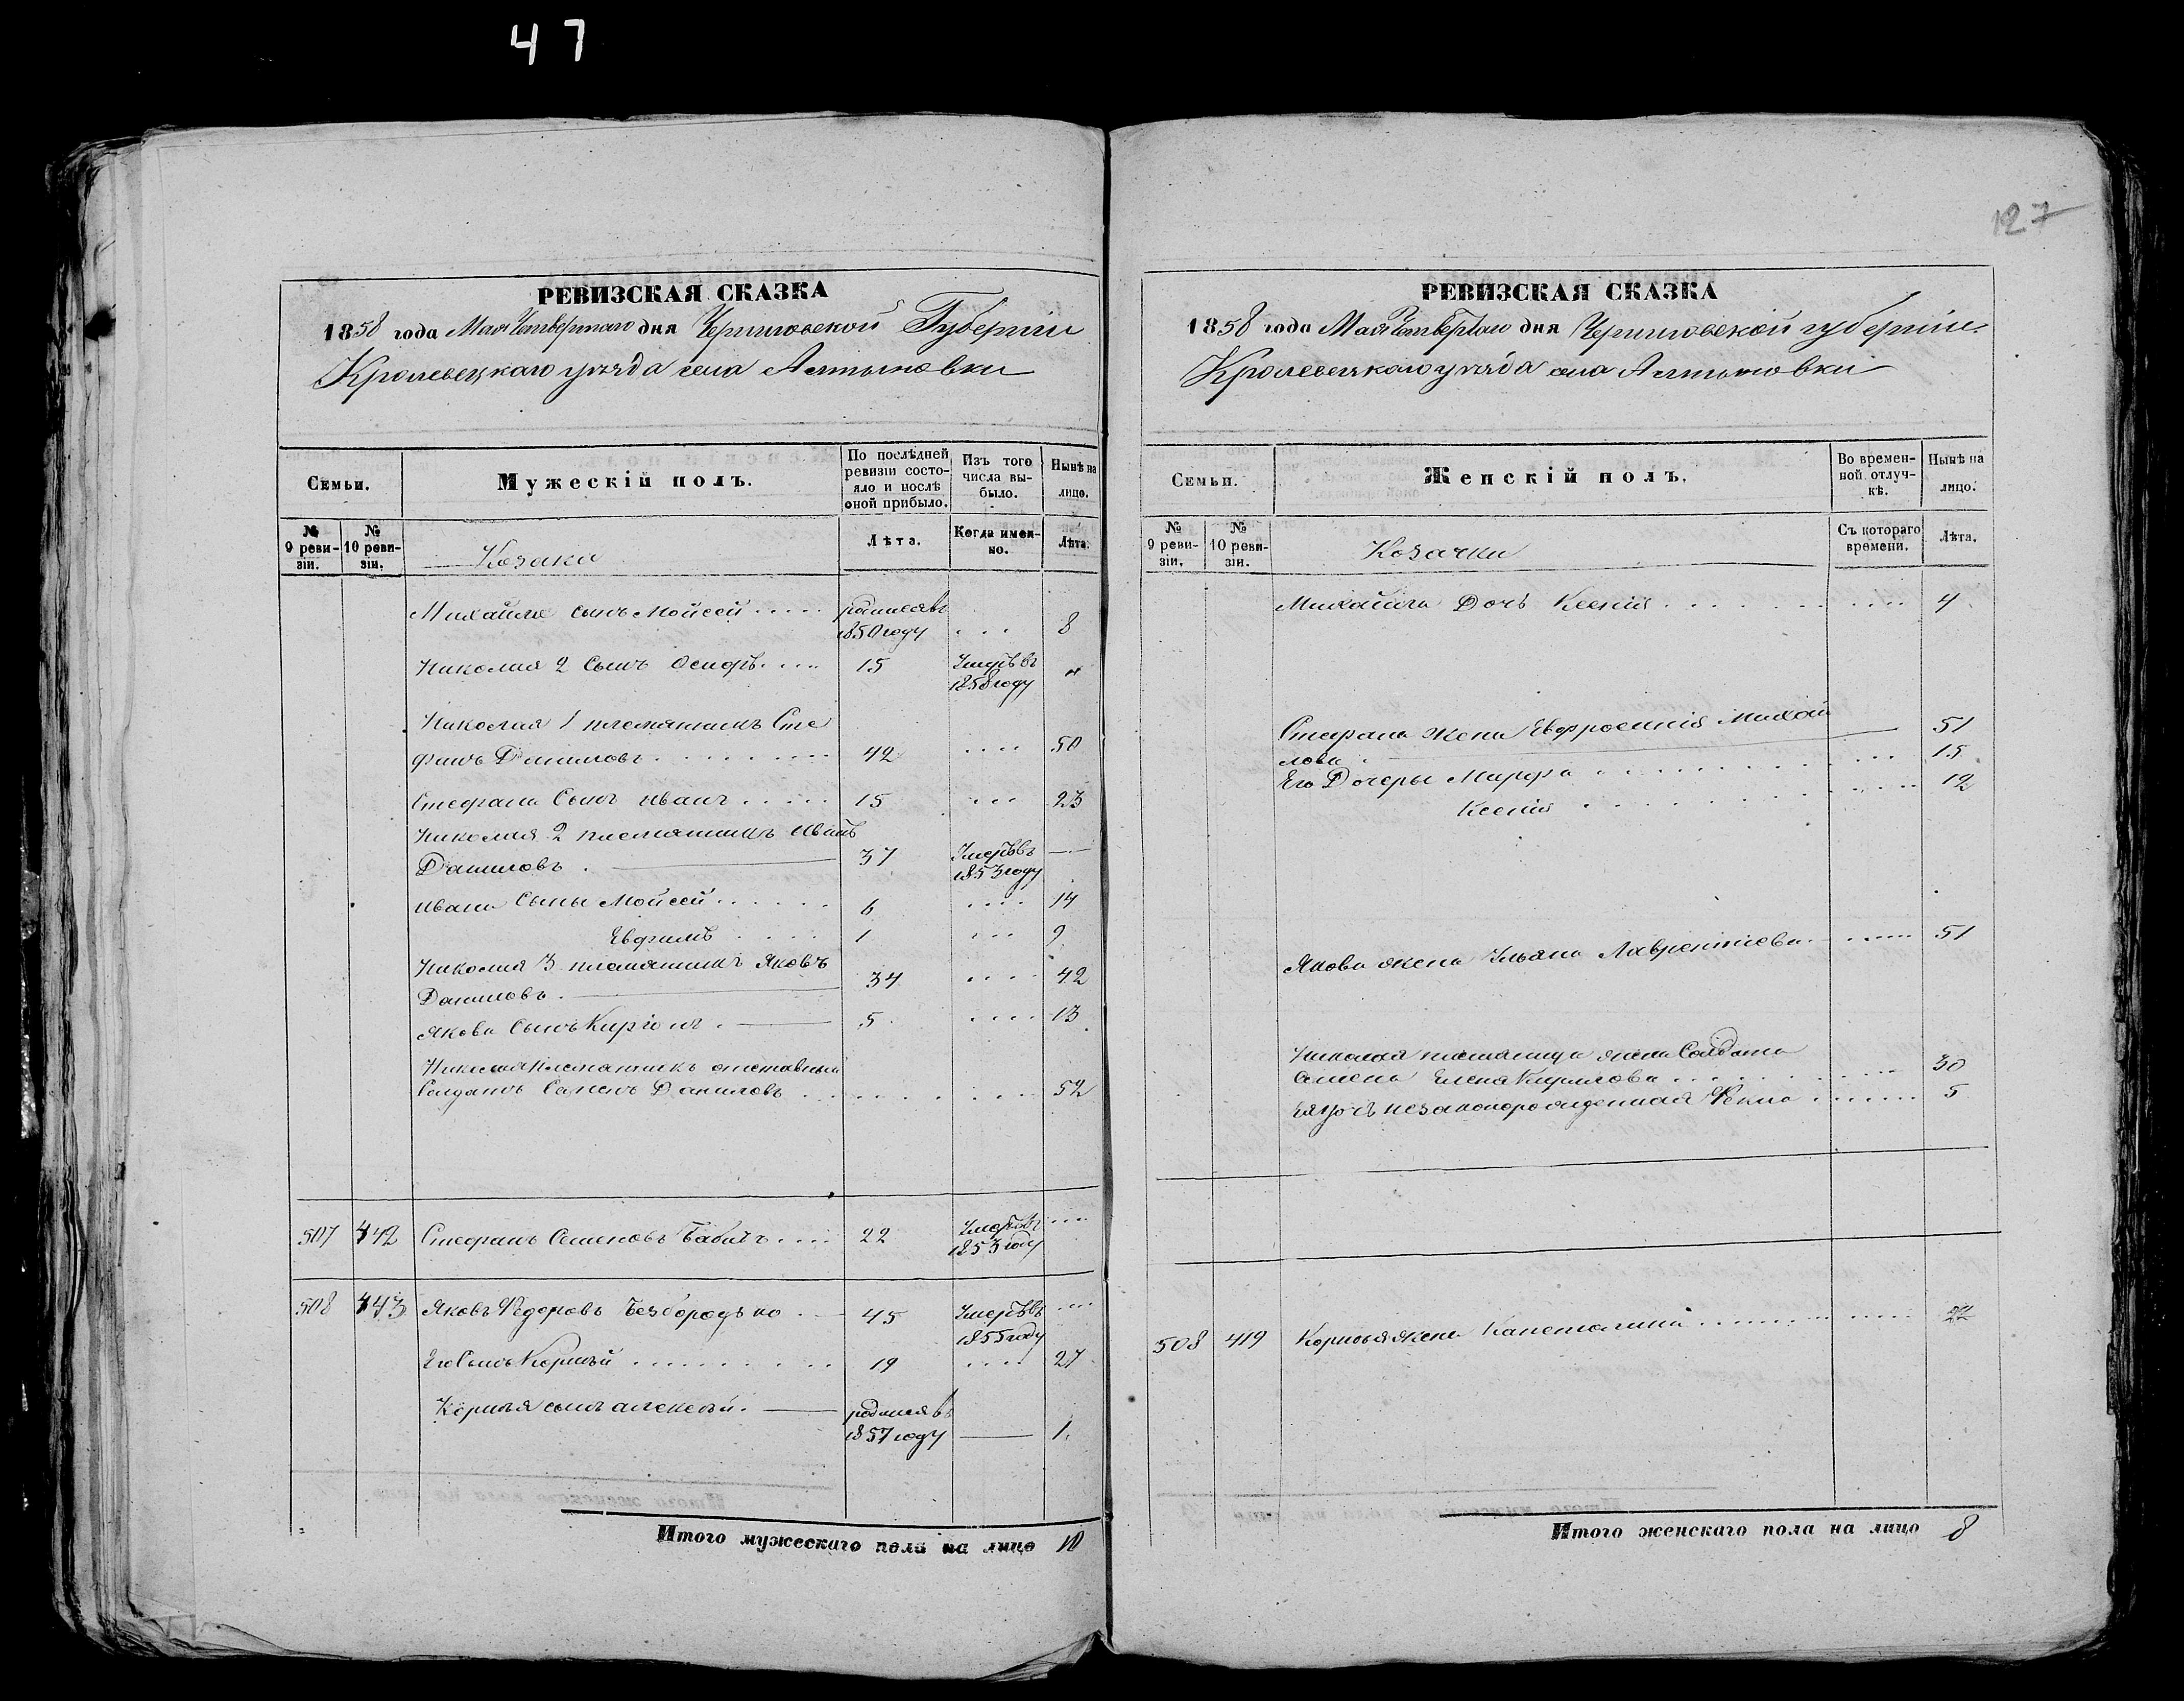 47
127
РЕВИЗСКАЯ СКАЗКА
1858 года Мая Четвертаго дня Черниговской Губерніи
Кролевецкаго уѣзда села Алтыновки
Семьи.
Мужескій полъ.
По послѣдней
ревизіи состо-
яло и послѣ
оной прибыло.
Изъ того
числа вы-
было.
Нынѣ на
лицо.
№
9 реви-
зіи.
№
10 реви-
зіи.
Козаки
Лѣта.
Когда имен-
но.
Лѣта.
Михайла сынъ Мойсей родился въ
1850 году 8
Николая 2 Сынъ Осипъ 15 Умеръ въ
1858 году
Николая 1 племянникъ Сте
фанъ Даниловъ 42 50
Стефана Сынъ Иванъ 15 23
Николая 2 племянникъ Иванъ
Даниловъ 37 Умеръ въ
1853 году
Ивана Сыны Мойсей 6 14
Евфимъ 1 9
Николая 3 племянникъ Яковъ
Даниловъ 34 42
Якова Сынъ 5 13
Николая Племянникъ отставный
Солдатъ Семенъ Даниловъ 52
507 442 Стефанъ Семеновъ Бабичъ 22 Умеръ въ
1853 году
508 443 Яковъ Федоровъ Безбородько 45 Умеръ въ
1855 году
Его Сынъ Корнѣй 19 27
Корнѣя сынъ Алексѣй родился въ
1857 году 1
Итого мужескаго пола на лицо 10
РЕВИЗСКАЯ СКАЗКА
1858 года Мая Четвертаго дня Черниговской губерніи
Кролевецкаго уѣзда села Алтыновки
Семьи.
Женскій полъ.
Во времен-
ной отлуч-
кѣ.
Нынѣ на
лицо.
№
9 реви-
зіи.
№
10 реви-
зіи.
Козачки
Съ котораго
времени.
Лѣта.
Михайла Дочь Ксенія 4
Стефана жена Евфросинія Михай
лова 51
Его Дочеры Марфа 15
Ксенія 12
Якова жена Ульяна Лаврентіева 51
Николая племянница жена Солдата
Семена Елена Кирилова 30
Ея дочь незаконорожденная Фекла 5
508 419 Корнѣя жена Капетолина 22
Итого женскаго пола на лицо 8